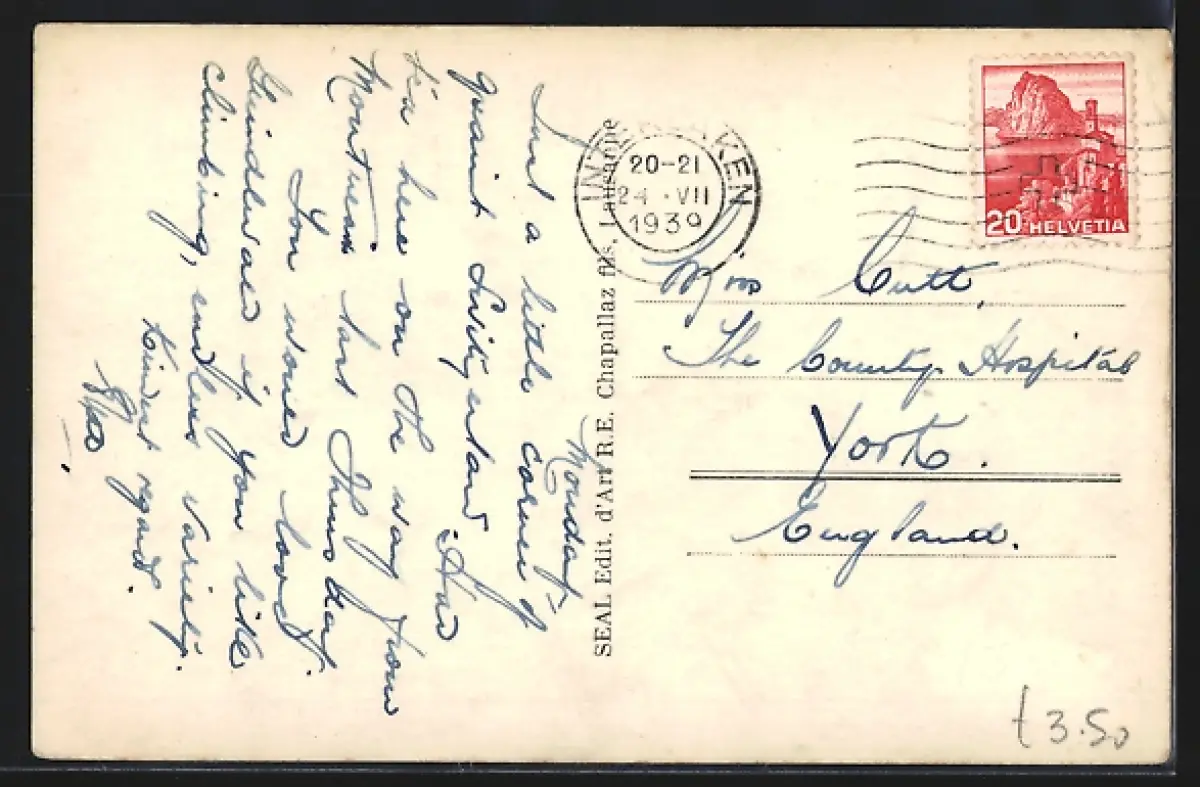 Monday.
Just a little corner of
quaint Switzerland. Had
tea here on the way from
Montreux last Thursday.
You would love
Grindelwald if you like
climbing, endless variety.
Kindest regards.
SEAL Edit. d'Art R.E. Chapallaz fils, Lausanne
INTERLAKEN
20-21
24.VII
1939
20 HELVETIA
Miss Cutt,
The County Hospital
York.
England.
£3.50